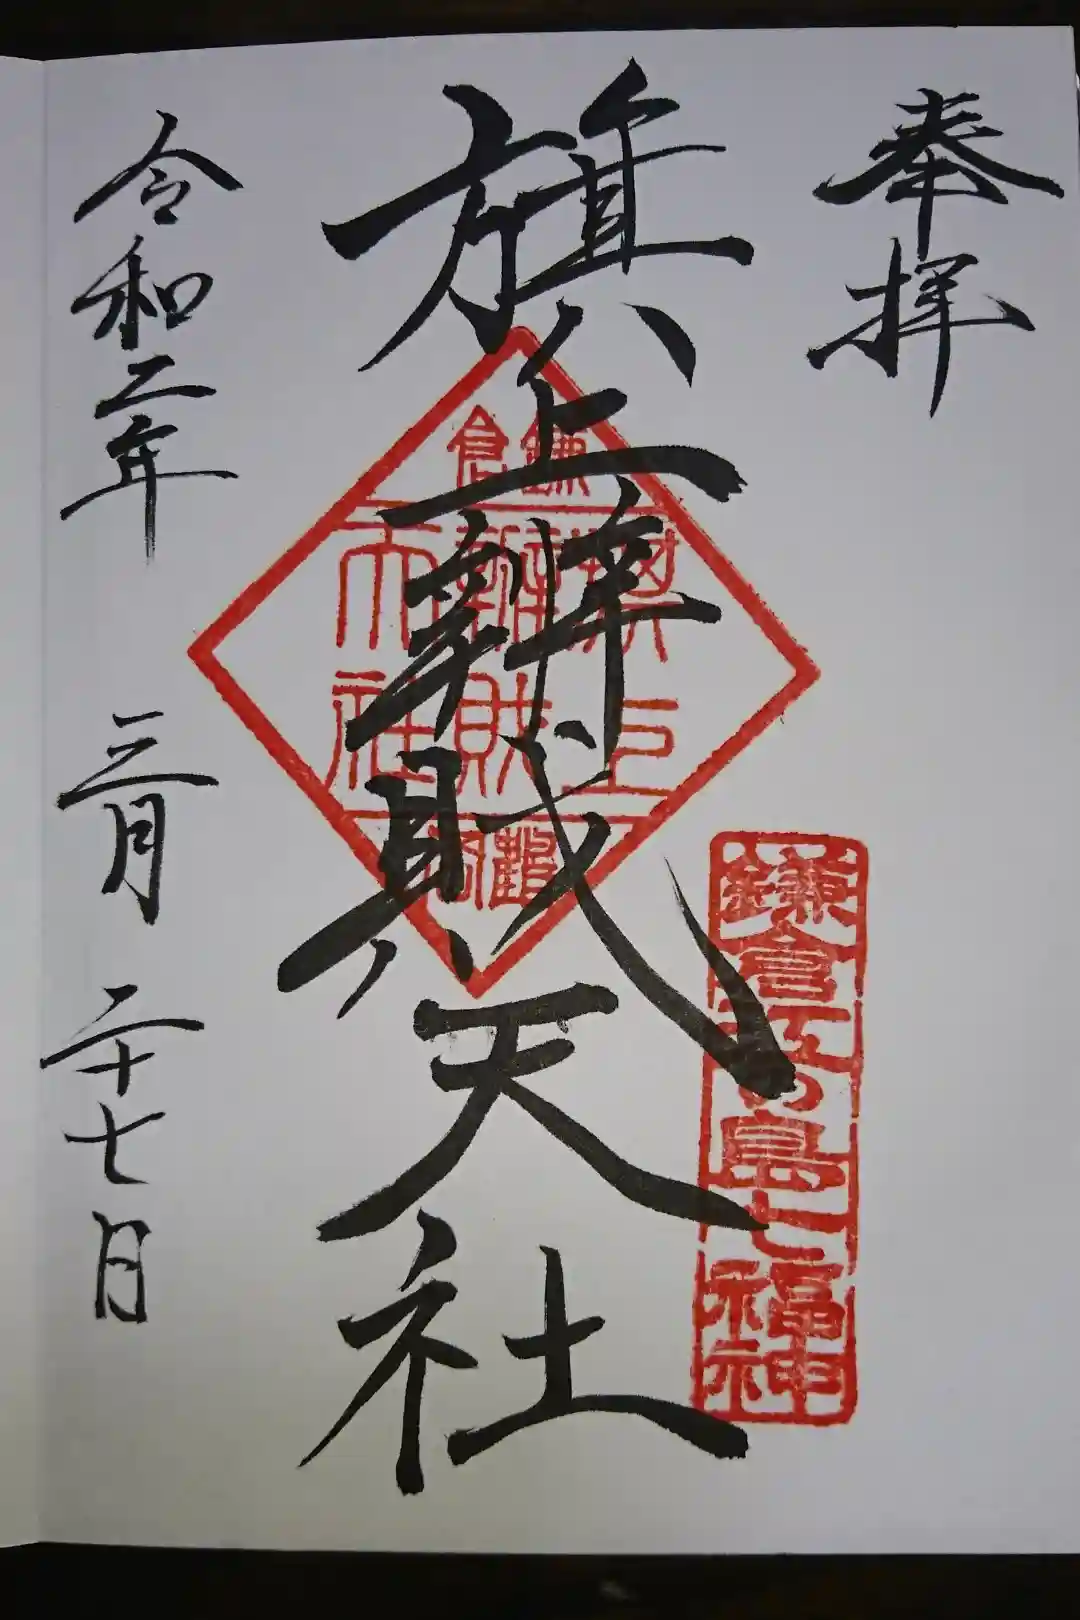 奉拝
旗上辨財天社
令和二年 三月 二十七日
鎌倉
旗上
辨財
天社
鎌倉江の島七福神